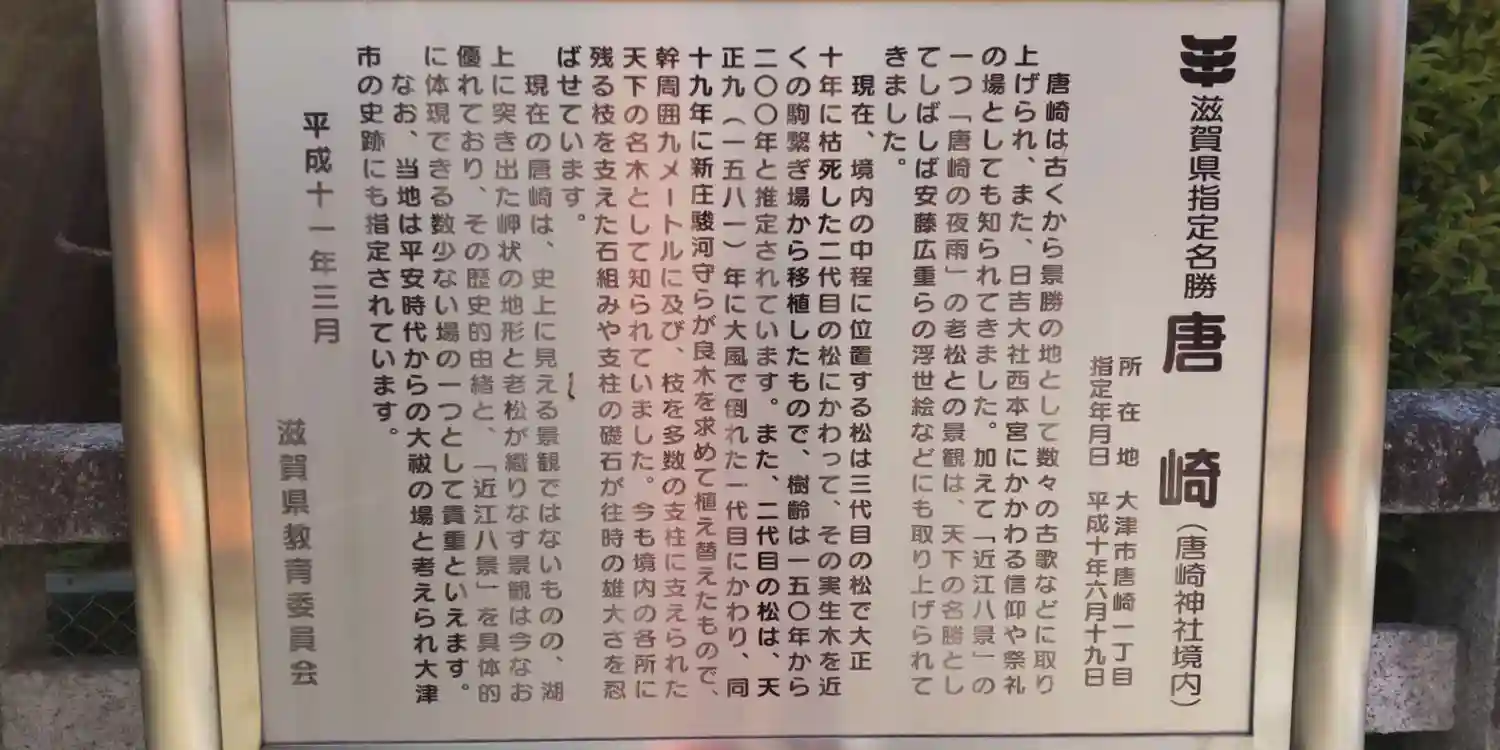 滋賀県指定名勝 唐崎(唐崎神社境内)
所在地 大津市唐崎一丁目
指定年月日 平成十年六月十九日
唐崎は古くから景勝の地として数々の古歌などに取り
上げられ、また、日吉大社西本宮にかかわる信仰や祭礼
の場としても知られてきました。加えて「近江八景」の
一つ「唐崎の夜雨」の老松との景観は、天下の名勝とし
てしばしば安藤広重らの浮世絵などにも取り上げられて
きました。
現在、境内の中程に位置する松は三代目の松で大正
十年に枯死した二代目の松にかわって、その実生木を近
くの駒繋ぎ場から移植したもので、樹齢は一五〇年から
二〇〇年と推定されています。また、二代目の松は、天
正九(一五八一)年に大風で倒れた一代目にかわり、同
十九年に新庄駿河守らが良木を求めて植え替えたもので、
幹周囲九メートルに及び、枝を多数の支柱に支えられた
天下の名木として知られていました。今も境内の各所に
残る枝を支えた石組みや支柱の礎石が往時の雄大さを忍
ばせています。
現在の唐崎は、史上に見える景観ではないものの、湖
上に突き出た岬状の地形と老松が織りなす景観は今なお
優れており、その歴史的由緒と、「近江八景」を具体的
に体現できる数少ない場の一つとして貴重といえます。
なお、当地は平安時代からの大祓の場と考えられ大津
市の史跡にも指定されています。
平成十一年三月
滋賀県教育委員会